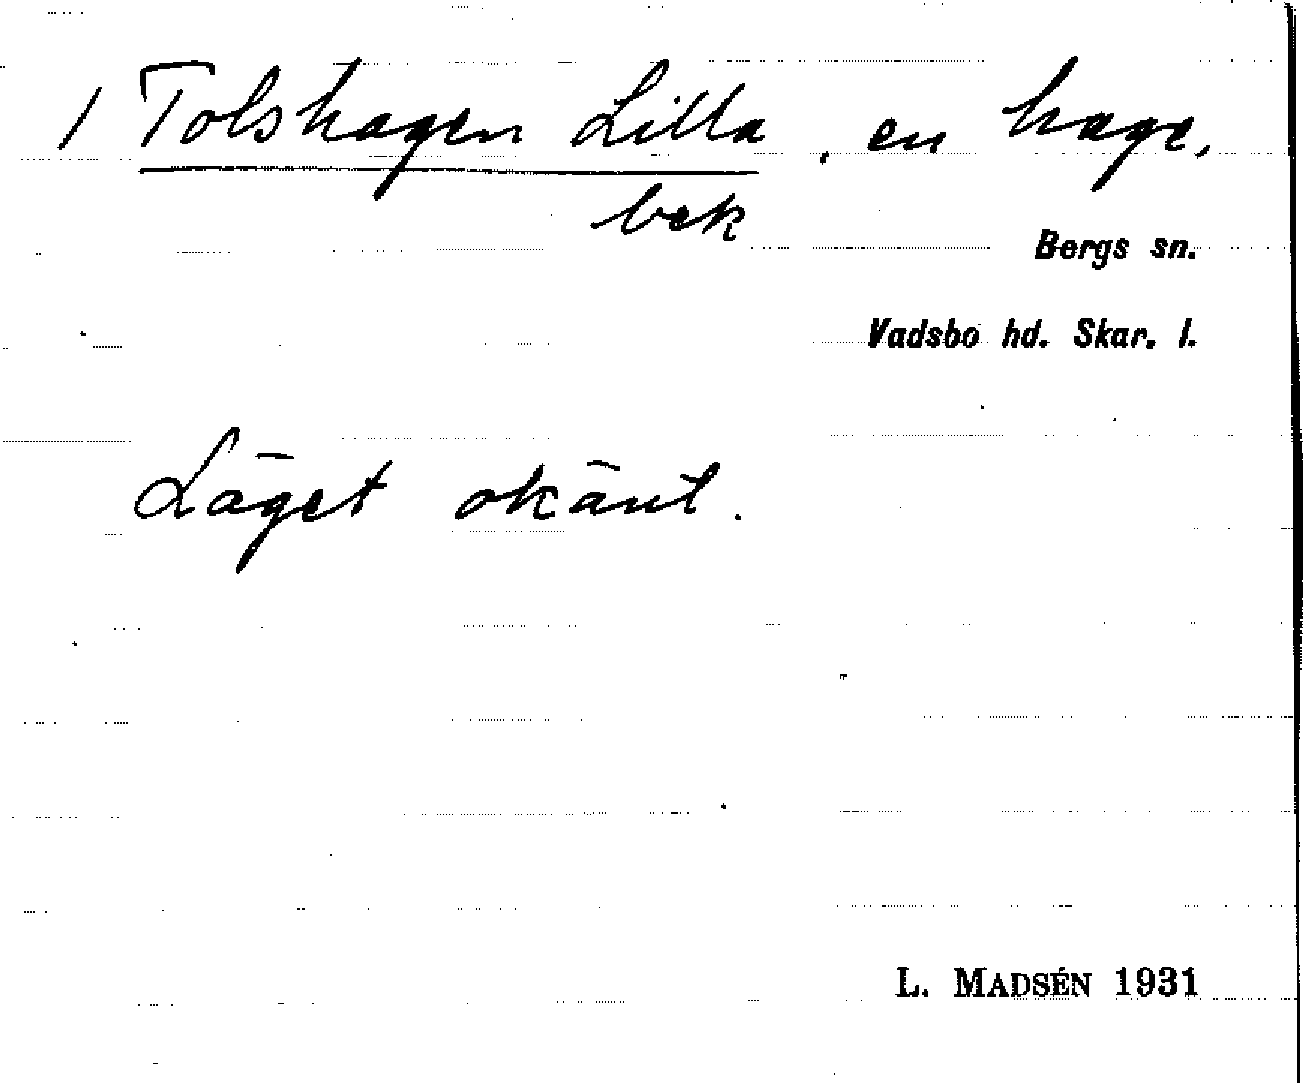 / Tolshagen Lilla, en hage,
bek
Bergs sn.
Vadsbo hd. Skar. l.
Läget okänt.
L. MADSÉN 1931